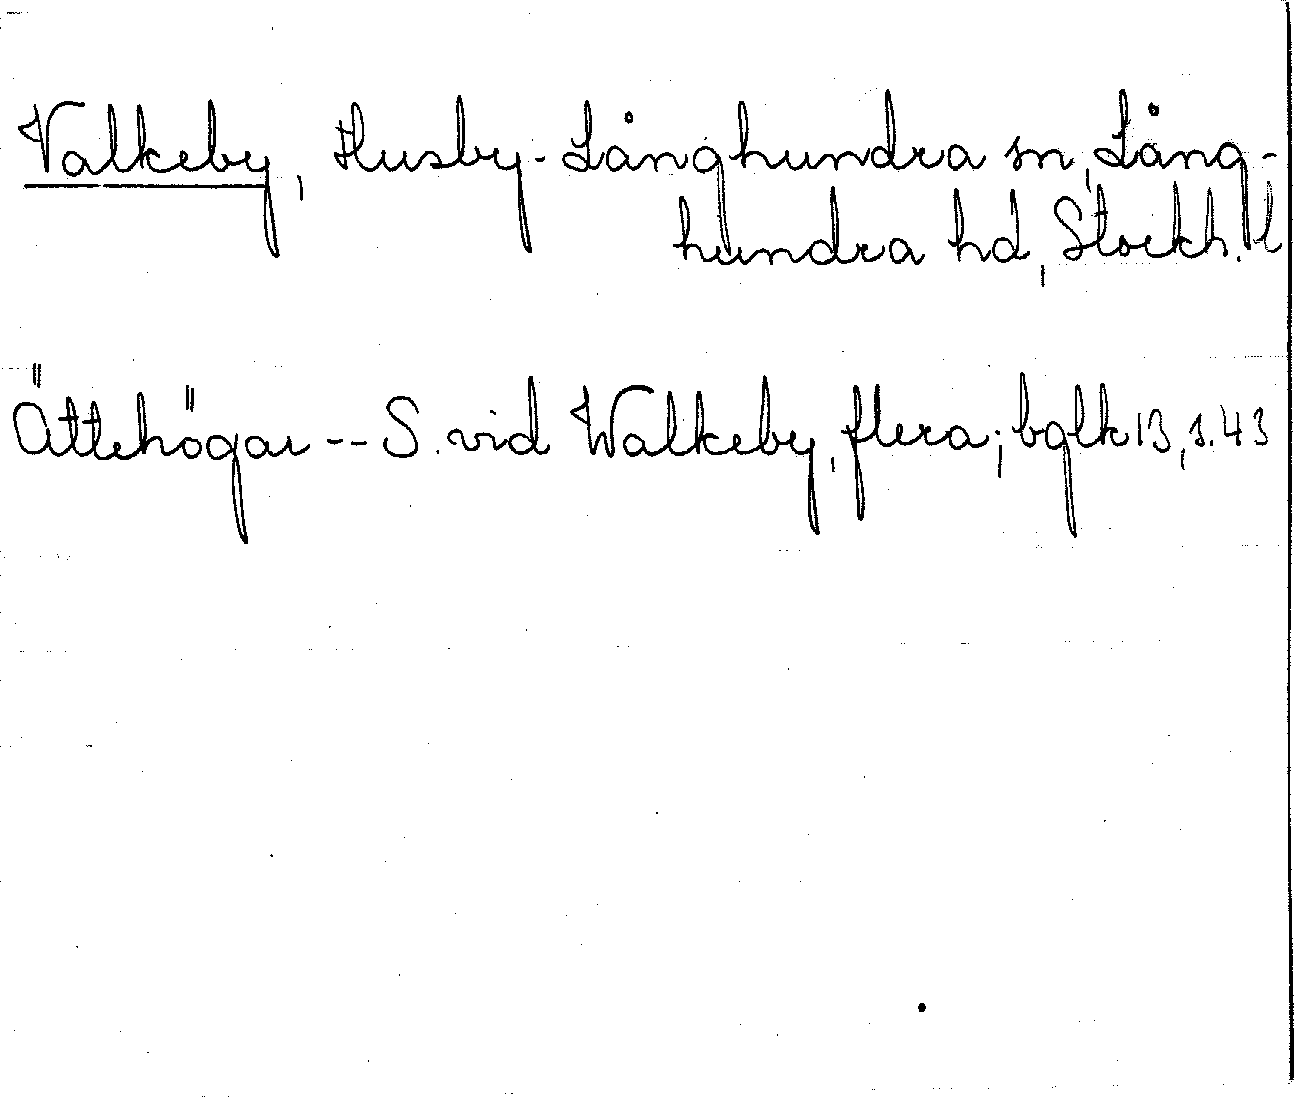 Valkeby, Husby-Långhundra sn, Lång-
hundra hd, Stockh. l
Ättehögar -- S. vid Walkeby, flera; bglk 13, s. 43